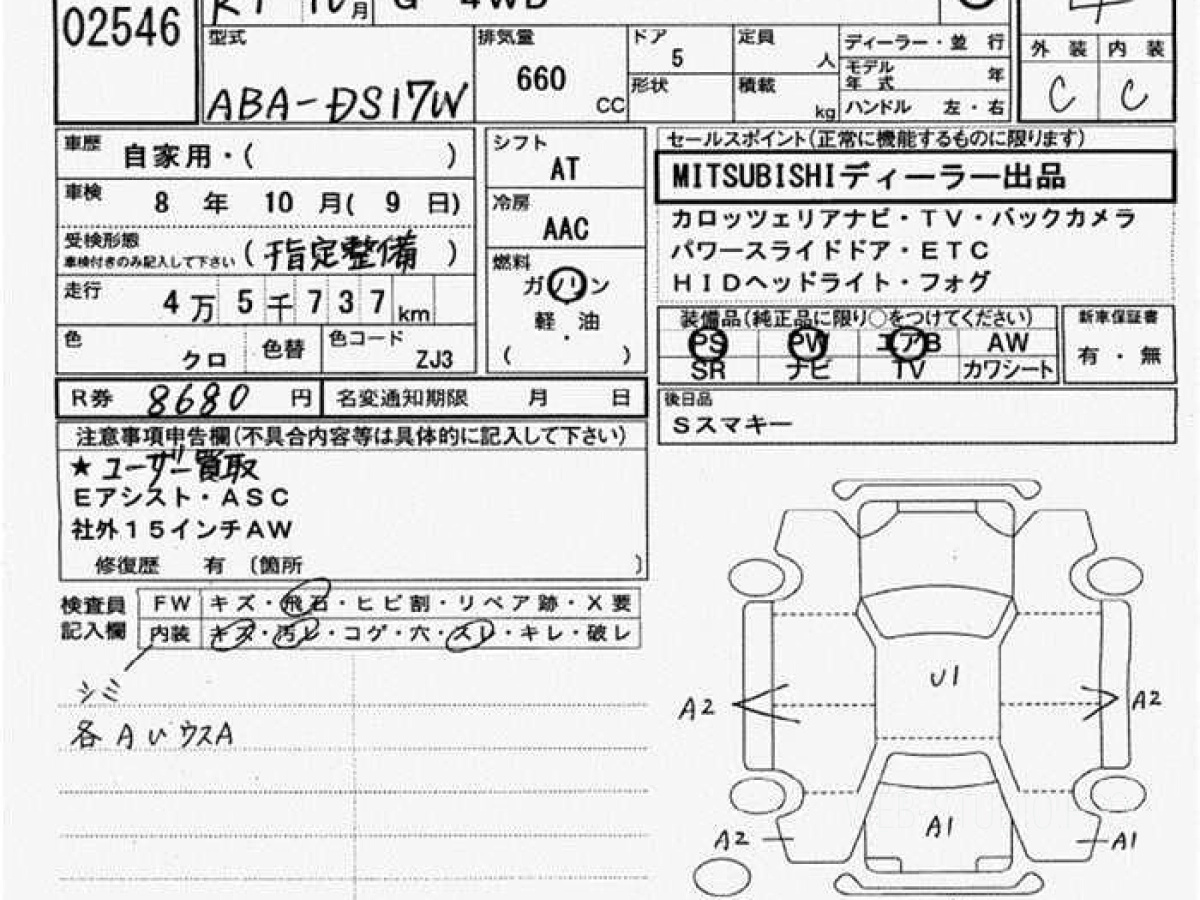 02546 R1 10月 G 4WD
型式 ABA-DS17W
排気量 660 CC
ドア 5
形状
定員 人
積載 kg
ディーラー・並 行
モデル年式 年
ハンドル 左・右
外 装 内 装
C C
車歴 自家用・( )
車検 8 年 10 月( 9 日)
受検形態 車検付きのみ記入して下さい (指定整備)
走行 4万5千737km
色 クロ 色替 色コード ZJ3
シフト AT
冷房 AAC
燃料
ガソリン
・
軽 油
( )
セールスポイント(正常に機能するものに限ります)
MITSUBISHIディーラー出品
カロッツェリアナビ・TV・バックカメラ
パワースライドドア・ETC
HIDヘッドライト・フォグ
装備品(純正品に限り○をつけてください)
PS PW エアB AW
SR ナビ TV カワシート
新車保証書
有・無
R券 8680 円 名変通知期限 月 日
後日品
Sスマキー
注意事項申告欄(不具合内容等は具体的に記入して下さい)
★ユーザー買取
Eアシスト・ASC
社外15インチAW
修復歴 有 〔箇所 〕
検査員記入欄
FW キズ・飛石・ヒビ割・リペア跡・X要
内装 キズ・汚レ・コゲ・穴・スレ・キレ・破レ
シミ
各AUウスA
U1
A2 A2
A1
A2 A1